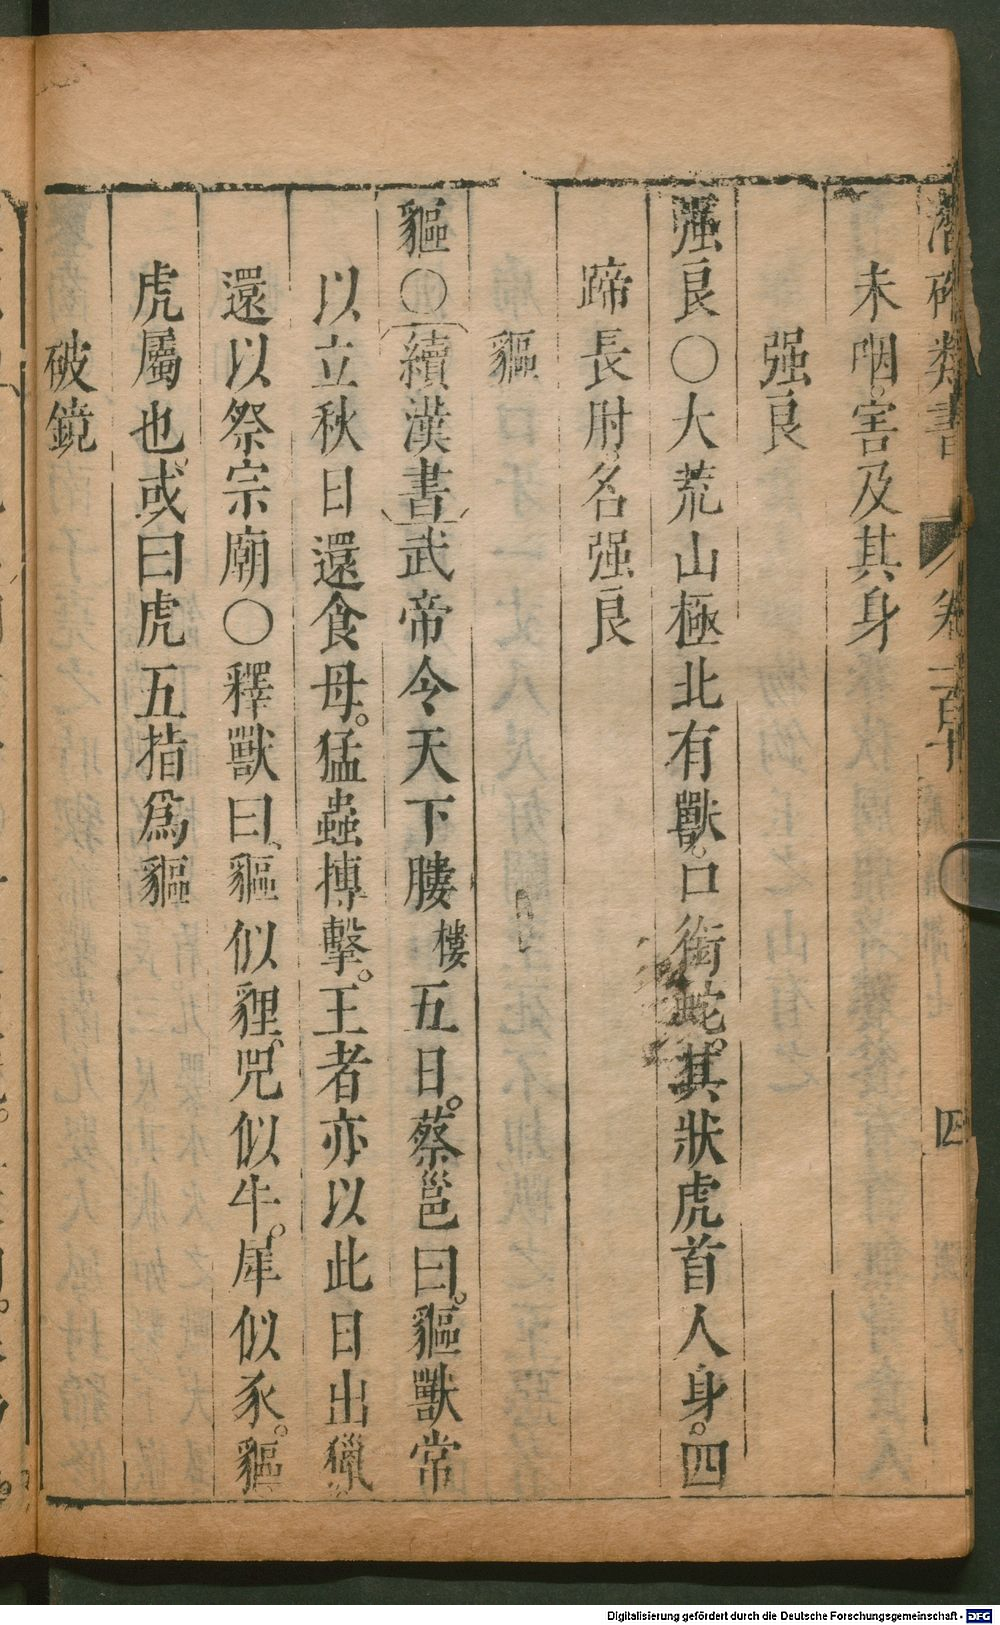 潛確類書 卷一百十 四
未咽。害及其身
强良
强良〇大荒山極北有獸。口銜蛇。其狀虎首人身。四
蹄長肘。名强良
貙
貙〇續漢書武帝令天下膢樓五日。蔡邕曰。貙獸常
以立秋日還食母。猛蟲搏擊。王者亦以此日出獵
還以祭宗廟〇釋獸曰、貙似貍、兕似牛。犀似豕。貙
虎屬也。或曰虎五指爲貙
破鏡
Digitalisierung gefördert durch die Deutsche Forschungsgemeinschaft - DFG